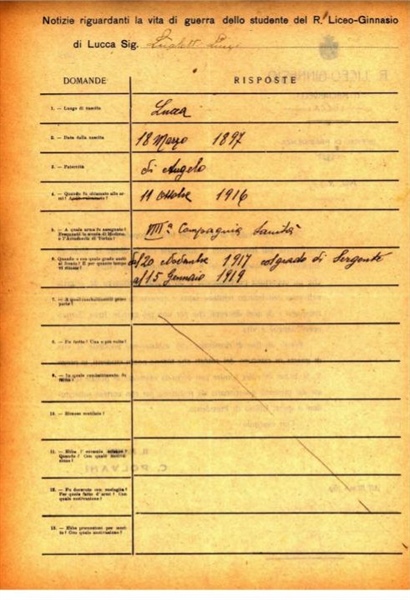 Notizie riguardanti la vita di guerra dello studente del R. Liceo-Ginnasio
di Lucca Sig.
DOMANDE
RISPOSTE
1. — Luogo di nascita
Lucca
2. — Data della nascita
18 Marzo 1897
3. — Paternità
di Angelo
4. — Quando fu chiamato alle armi?
11 ottobre 1916
5. — A quale arma fu assegnato?
Frequentò la scuola di Modena,
o l'Accademia di Torino?
Compagnia Sanità
6. — Quando e con quale grado andò
al fronte? E per quanto tempo
vi rimase?
dal 20 Novembre 1917 col grado di Sergente
al 15 Gennaio 1919
7. — A quali combattimenti prese
parte?
8. — Fu ferito? Una o più volte?
9. — In quale combattimento fu
ferito?
10. — Rimase mutilato?
11. — Ebbe l'encomio
Quando? Con quale motivazione?
12. — Fu decorato con medaglia?
Per quale fatto d'armi? Con
quale motivazione?
13. — Ebbe promozioni per meriti?
Con quale motivazione?